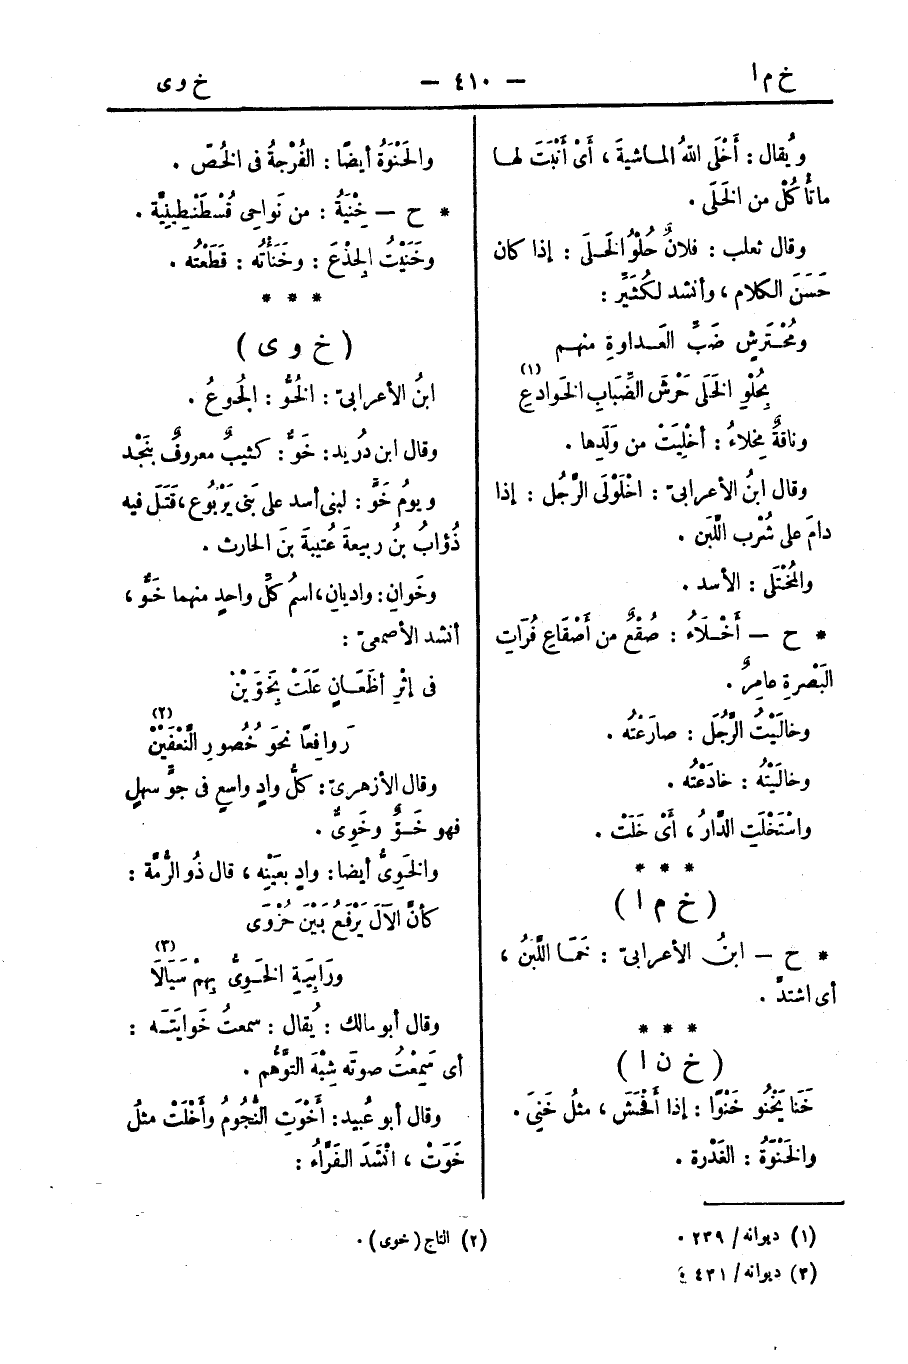 خ م ا
— ٤١٠ —
خ وى
ويُقال : أَخْلَى اللهُ الماشيةَ ، أَىْ أَنْبَتَ لها
ماتأْكُلُ من الخَلَى .
وقال ثعلب : فلانٌ حُلْوُ الخَلَى : إذا كان
حَسَنَ الكلام ، وأنشد لكُثَيِّر :
ومُحْتَرِشٍ ضَبَّ العَداوةِ منهم
بِحُلْوِ الخَلَى حَرْشَ الضِّبَابِ الخَوادعِ (١)
وناقةٌ مِخلاءُ : أخْلِيَتْ من وَلَدِها .
وقال ابنُ الأعرابىّ : اخْلَوْلَى الرَّجُل : إذا
دامَ على شُرْب اللَّبَن .
والمُخْتَلِى : الأسد .
* ح — أَخْلَاءُ : صُقْعٌ من أَصْقاعِ فُرَاتِ
البَصْرةِ عامِرٌ .
وخالَيْتُ الرَّجُلَ : صارَعْتُه .
وخالَيْتُه : خادَعْتُه .
واسْتَخْلَتِ الدَّارُ ، أَىْ خَلَتْ .
* * *
( خ م ا )
* ح — ابنُ الأعرابىّ : خَمَا اللَّبَنُ ،
أى اشتدَّ .
* * *
( خ ن ا )
خَنَا يَخْنُو خَنْوًا : إذا أَفْحَشَ ، مثلُ خَنِىَ .
والخَنْوَةُ : الغَدْرة .
والخَنْوَةُ أيضًا : الفُرْجةُ فى الخُصّ .
* ح — خِنْيَةُ : من نَواحِى قُسْطَنْطِينِيَّة .
وخَنَيْتُ الجِذْعَ : وخَنَأْتُه : قَطَعْتُه .
* * *
( خ و ى )
ابنُ الأعرابىّ : الخُوُّ : الجُوعُ .
وقال ابن دُرَيد : خَوٌّ : كثيبٌ معروفٌ بنَجْد
ويومُ خَوٍّ : لبنى أسد على بَنى يَرْبُوع ، قَتَلَ فيه
ذُؤابُ بنُ ربيعةَ عُتيبةَ بنَ الحارث .
وخَوانِ : واديانِ ، اسمُ كلِّ واحدٍ منهما خَوٌّ ،
أنشد الأصمعىّ :
فى إثْرِ أظْعَانٍ عَلَتْ بِخَوَّيْنْ
رَوافِعًا نحوَ خُصُورِ النَّعْفَيْنْ (٢)
وقال الأزهرىّ : كلُّ وادٍ واسعٍ فى جَوٍّ سهلٍ
فهو خَوٌّ وخَوِىٌّ .
والخَوِىُّ أيضا : وادٍ بعَيْنِه ، قال ذُو الرُّمَّة :
كأنَّ الآلَ يَرْفَعُ بَيْنَ حُزْوَى
ورَابِيَةِ الخَوِىِّ بِهِمْ سَيَالَا (٣)
وقال أبو مالك : يُقال : سمعتُ خَوايَتَه :
أى سَمِعْتُ صوتَه شِبْهَ التوَّهُّم .
وقال أبو عُبيد : أَخْوَتِ النُّجُومُ وأَخْلَتْ مثلُ
خَوَتْ ، انْشَدَ الفَرَّاءُ :
(١) ديوانه / ٢٣٩ .
(٢) التاج ( خوى ) .
(٣) ديوانه / ٤٣١